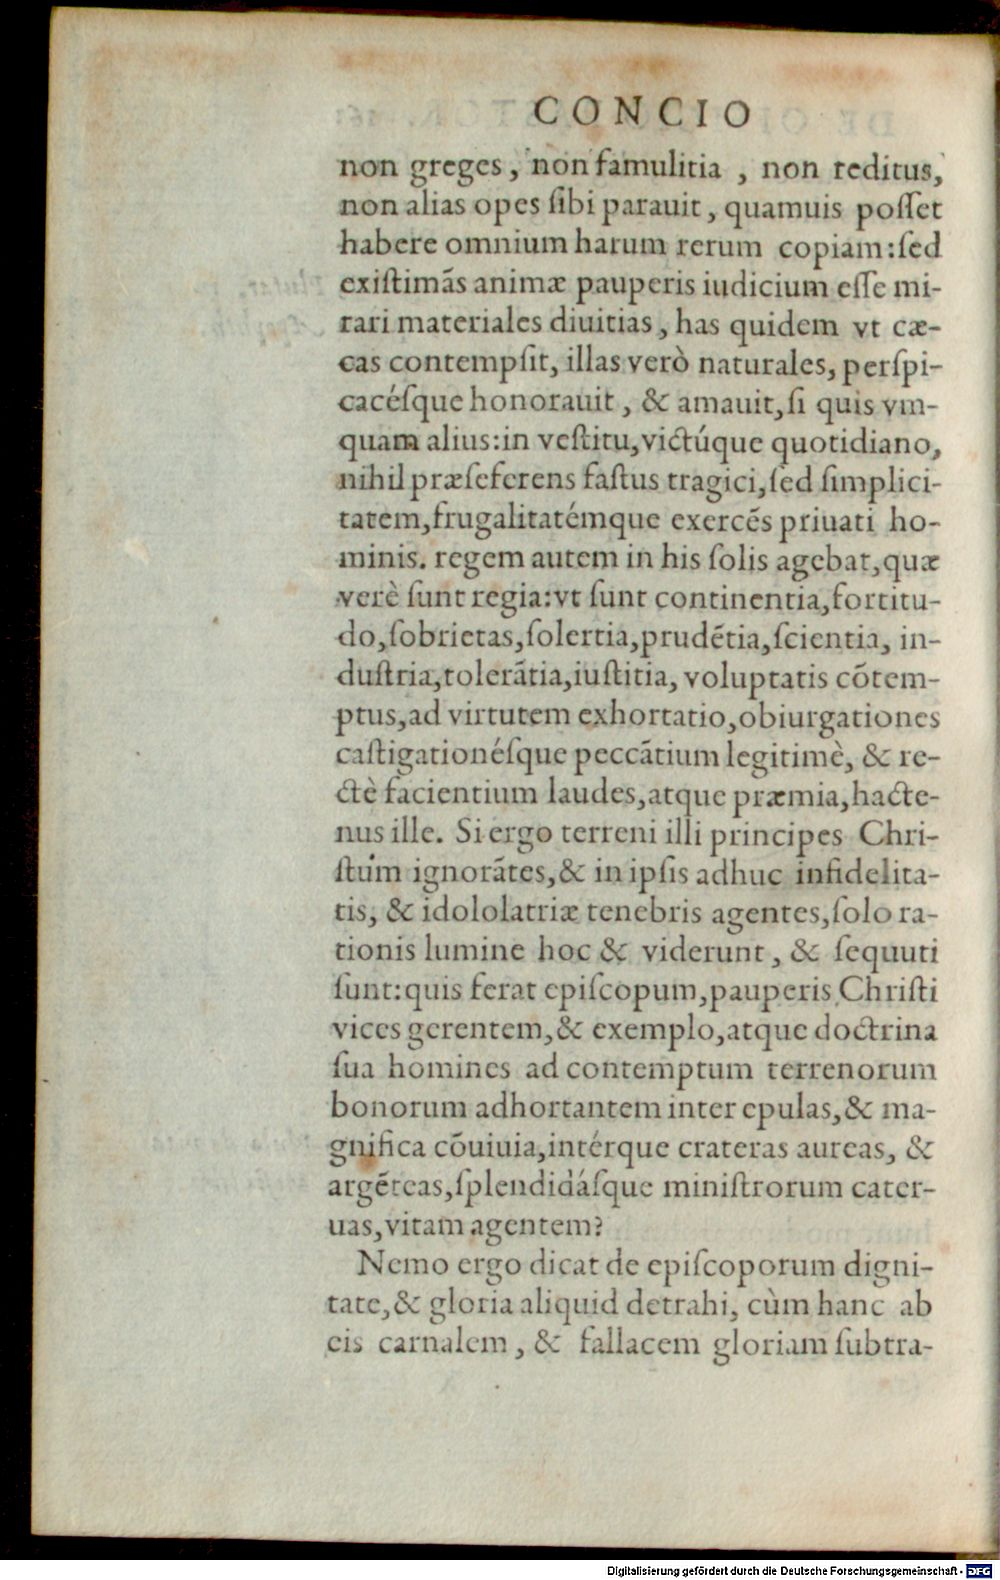 CONCIO
non greges, non famulitia , non reditus,
non alias opes ſibi parauit, quamuis poſſet
habere omnium harum rerum copiam:ſed
exiſtimãs animæ pauperis iudicium eſſe mi-
rari materiales diuitias, has quidem vt cæ-
cas contempſit, illas verò naturales, perſpi-
cacéſque honorauit, & amauit,ſi quis vm-
quam alius:in veſtitu,victúque quotidiano,
nihil præſeferens faſtus tragici,ſed ſimplici-
tatem,frugalitatémque exercẽs priuati ho-
minis. regem autem in his ſolis agebat,quæ
verè ſunt regia:vt ſunt continentia,fortitu-
do,ſobrietas,ſolertia,prudẽtia,ſcientia, in-
duſtria,tolerãtia,iuſtitia, voluptatis cõtem-
ptus,ad virtutem exhortatio,obiurgationes
caſtigationéſque peccãtium legitimè, & re-
ctè facientium laudes,atque præmia,hacte-
nus ille. Si ergo terreni illi principes Chri-
ſtum ignorãtes,& in ipſis adhuc infidelita-
tis, & idololatriæ tenebris agentes,ſolo ra-
tionis lumine hoc & viderunt, & ſequuti
ſunt:quis ferat epiſcopum,pauperis Chriſti
vices gerentem,& exemplo,atque doctrina
ſua homines ad contemptum terrenorum
bonorum adhortantem inter epulas,& ma-
gnifica cõuiuia,intérque crateras aureas, &
argẽteas,ſplendidáſque miniſtrorum cater-
uas,vitam agentem?
Nemo ergo dicat de epiſcoporum digni-
tate,& gloria aliquid detrahi, cùm hanc ab
eis carnalem, & fallacem gloriam ſubtra-
Digitalisierung gefördert durch die Deutsche Forschungsgemeinschaft - DFG